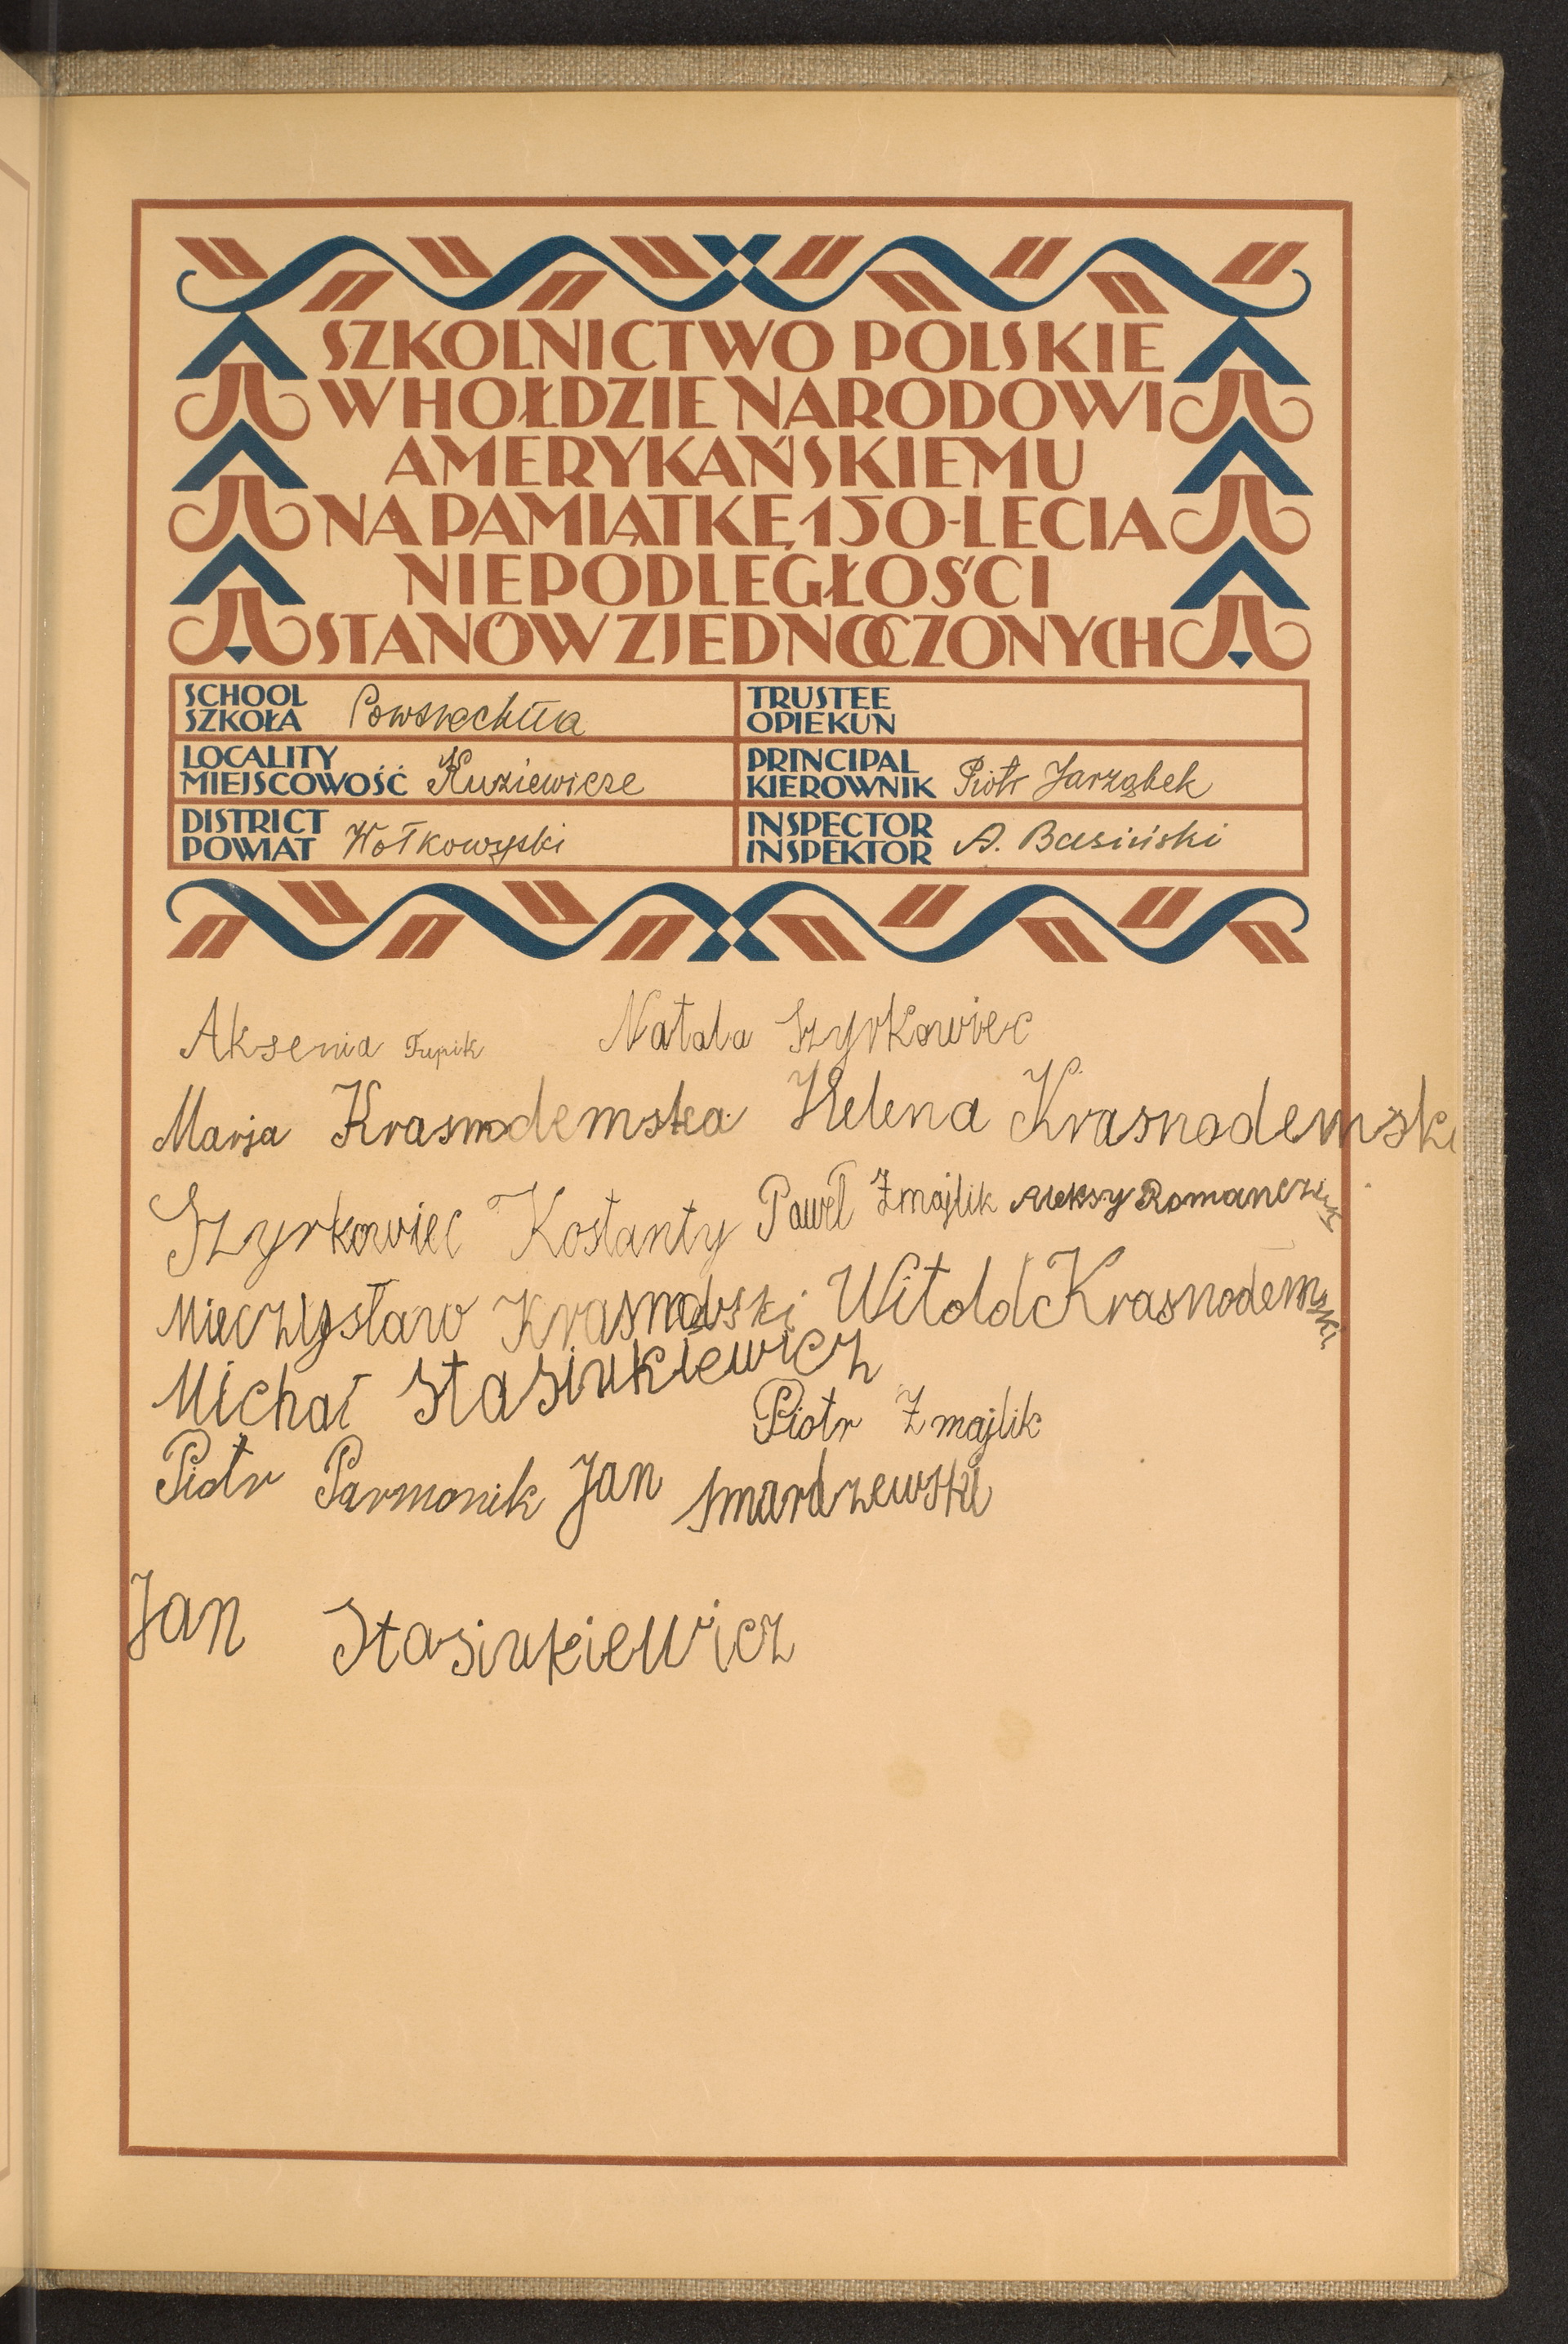 SZKOLNICTWO POLSKIE
W HOŁDZIE NARODOWI
AMERYKAŃSKIEMU
NA PAMIĄTKĘ 150-LECIA
NIEPODLEGŁOŚCI
STANÓW ZJEDNOCZONYCH
SCHOOL
SZKOŁA Powszechna
TRUSTEE
OPIEKUN
LOCALITY
MIEJSCOWOŚĆ Kuziewicze
PRINCIPAL
KIEROWNIK Piotr Jarząbek
DISTRICT
POWIAT Wołkowyski
INSPECTOR
INSPEKTOR A. Basiński
Aksenia Tupik Natala Szyrkowiec
Marja Krasnodemska Helena Krasnodemska
Szyrkowiec Kostanty Paweł Żmajlik Aleksy Romanczuk
Mieczysław Witold Krasnodemski
Michał Stasiukiewicz
Piotr Żmajlik
Piotr Parmonik Jan Smardzewski
Jan Stasiukiewicz